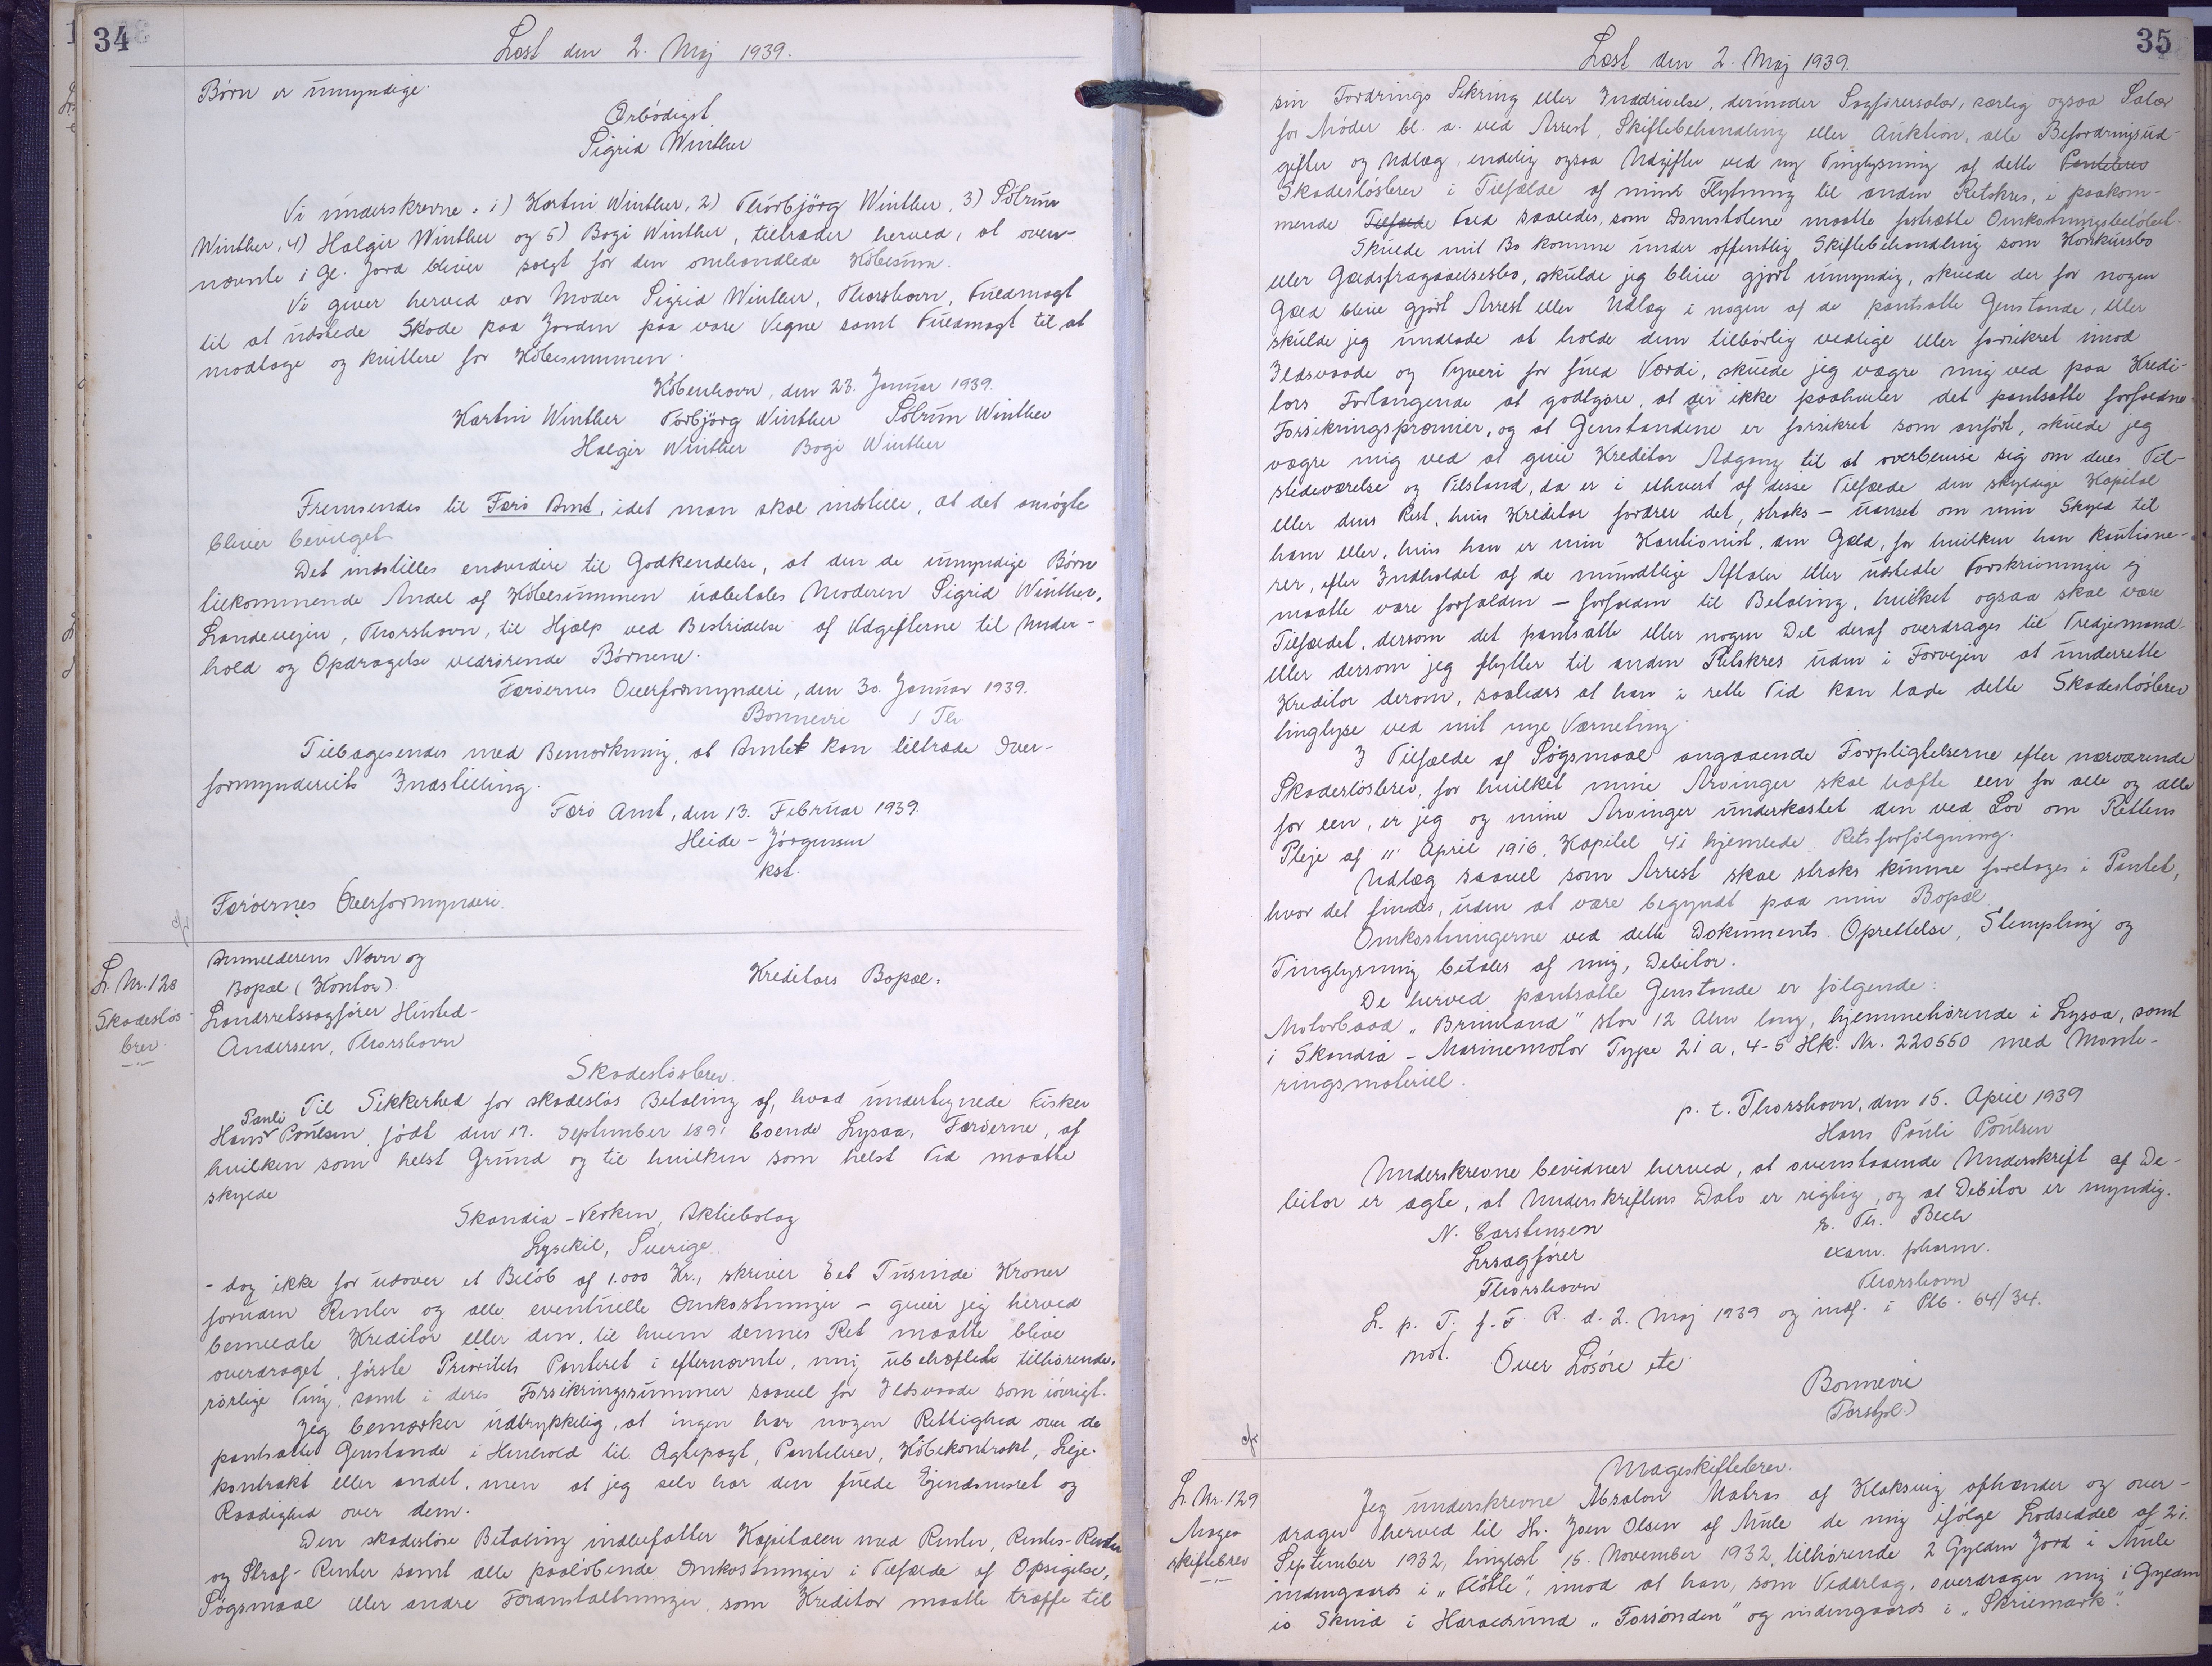 34
Læst den 2. Maj 1939.
Børn er umyndige.
Ærbödigst
Sigrid Winther
Vi underskrevne: 1) Kartni Winther, 2) Thorbjörg Winther, 3) Sólrun
Winther, 4) Holgir Winther og 5) Bogi Winther, tiltræder herved, at oven-
nævnte 1 Gl. Jord bliver solgt for den omhandlede Köbesum.
Vi giver herved vor Moder Sigrid Winther, Thorshavn, Fuldmagt
til at udstede Sköde paa Jorden paa vore Vegne samt Fuldmagt til at
modtage og kvittere for Köbesummen.
Köbenhavn, den 23. Januar 1939.
Kartni Winther Torbjörg Winther Sólrun Winther
Holgir Winther Bogi Winther
Fremsendes til Færö Amt, idet man skal indstille, at det ansögte
bliver bevilget.
Det indstilles endvidere til Godkendelse, at den de umyndige Börn
tilkommende Andel af Köbesummen udbetales Moderen Sigrid Winther,
Landevejen, Thorshavn, til Hjælp ved Bestridelse af Udgifterne til Under-
hold og Opdragelse vedrörende Börnene.
Færöernes Overformynderi, den 30. Januar 1939.
Bonnevie / Th
Tilbagesendes med Bemærkning, at Amtet kan tiltræde Over-
formynderiets Indstilling.
Færö Amt, den 13. Februar 1939.
Heide-Jörgensen
kst.
Færöernes Overformynderi.
L. Nr. 128
Skadeslös-
brev.
Anmelderens Navn og
Bopæl (Kontor)
Kreditors Bopæl.
Landsretssagförer Husted-
Andersen, Thorshavn
Skadeslösbrev.
Til Sikkerhed for skadeslös Betaling af, hvad undertegnede Fisker
Hans Pauli Poulsen, födt den 17. September 1891 boende Lysaa, Færöerne, af
hvilken som helst Grund og til hvilken som helst Tid maatte
skylde
Skandia-Verken, Aktiebolag
Lysekil, Sverige
- dog ikke for udover et Belöb af 1.000 Kr., skriver Eet Tusinde Kroner
foruden Renter og alle eventuelle Omkostninger - giver jeg herved
bemeldte Kreditor eller den, til hvem dennes Ret maatte blive
overdraget, förste Prioritets Panteret i efternævnte, mig ubehæftede tilhörende,
rörlige Ting, samt i deres Forsikringssummer saavel for Ildsvaade som iövrigt.
Jeg bemærker udtrykkelig, at ingen har nogen Rettighed over de
pantsatte Genstande i Henhold til Ægtepagt, Pantebrev, Köbekontrakt, Leje-
kontrakt eller andet, men at jeg selv har den fulde Ejendomsret og
Raadighed over dem.
Den skadeslöse Betaling indbefatter Kapitalen med Renter, Rentes-Renter
og Straf-Renter samt alle paalöbende Omkostninger i Tilfælde af Opsigelse,
Sögsmaal eller andre Foranstaltninger, som Kreditor maatte træffe til
35
Læst den 2. Maj 1939.
sin Fordrings Sikring eller Inddrivelse, derunder Sagförersalær, særlig ogsaa Salær
for Möder bl. a. ved Arrest, Skiftebehandling eller Auktion, alle Befordringsud-
gifter og Udlæg, endelig ogsaa Udgifter ved ny Tinglysning af dette Pantebrev
Skadeslösbrev i Tilfælde af min Flytning til anden Retskres, i paakom-
mende Tilfælde Fald saaledes, som Domstolene maatte fastsætte Omkostningsbelöbet.
Skulde mit Bo komme under offentlig Skiftebehandling som Konkursbo
eller Gældsfragaaelsesbo, skulde jeg blive gjort umyndig, skulde der for nogen
Gæld blive gjort Arrest eller Udlæg i nogen af de pantsatte Genstande, eller
skulde jeg undlade at holde dem tilbörlig vedlige eller forsikret imod
Ildsvaade og Tyveri for fuld Værdi, skulde jeg vægre mig ved paa Kredi-
tors Forlangende at godtgöre, at der ikke paahviler det pantsatte forfaldne
Forsikringspræmier, og at Genstandene er forsikret som anfört, skulde jeg
vægre mig ved at give Kreditor Adgang til at overbevise sig om deres Til-
stedeværelse og Tilstand, da er i ethvert af disse Tilfælde den skyldige Kapital
eller dens Rest, hvis Kreditor fordrer det, straks - uanset om min Skyld til
ham eller, hvis han er min Kautionist, den Gæld, for hvilken han kautione-
rer, efter Indholdet af de mundtlige Aftaler eller udstedte Forskrivninger ej
maatte være forfalden - forfalden til Betaling, hvilket ogsaa skal være
Tilfældet, dersom det pantsatte eller nogen Del deraf overdrages til Tredjemand
eller dersom jeg flytter til anden Retskres uden i Forvejen at underrette
Kreditor derom, saaledes at han i rette Tid kan lade dette Skadeslösbrev
tinglyse ved mit nye Værneting.
I Tilfælde af Sögsmaal angaaende Forpligtelserne efter nærværende
Skadeslösbrev, for hvilket mine Arvinger skal hæfte een for alle og alle
for een, er jeg og mine Arvinger underkastet den ved Lov om Rettens
Pleje af 11' April 1916, Kapitel 41 hjemlede Retsforfölgning.
Udlæg saavel som Arrest skal straks kunne foretages i Pantet,
hvor det findes, uden at være begyndt paa min Bopæl.
Omkostningerne ved dette Dokuments Oprettelse, Stempling og
Tinglysning betales af mig, Debitor.
De herved pantsatte Genstande er fölgende:
Motorbaad "Brimland" stor 12 Alen lang, hjemmehörende i Lysaa, samt
1 Skandia-Marinemotor Type 21 a, 4-5 Hk. Nr. 220550 med Monte-
ringsmateriel.
p. t. Thorshavn, den 15. April 1939
Hans Pauli Poulsen
Underskrevne bevidner herved, at ovenstaaende Underskrift af De-
bitor er ægte, at Underskriftens Dato er rigtig, og at Debitor er myndig.
N. Carstensen
Lrsagförer
Thorshavn
E. Th. Bech
exam. pharm.
Thorshavn
L. p. T. f. F. R. d. 2. Maj 1939 og indf. i Ptb. 64/34.
not. Over Lösöre etc
Bonnevie
L. Nr. 129
Mage-
skiftebrev
Mageskiftebrev.
Jeg underskrevne Absalon Matras af Klaksvig afhænder og over-
drager herved til Hr. Joen Olsen af Mule de mig ifölge Lodseddel af 21.
September 1932, tinglæst 15. November 1932, tilhörende 2 Gylden Jord i Mule
indengaards i "Flötte", imod at han, som Vederlag, overdrager mig 1 Gylden
10 Skind i Haraldsund "Forsönden" og indengaards i "Skriemark".